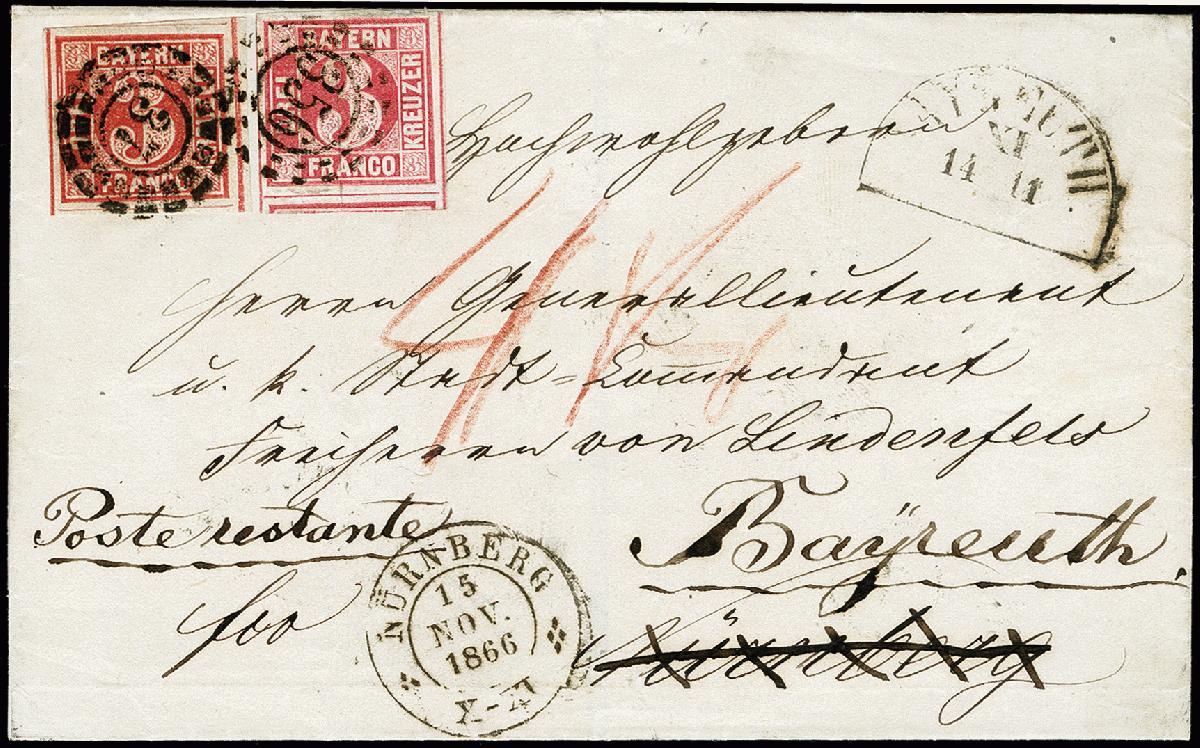 BAYERN
3
FRANCO
BAYERN
DREI
3
KREUZER
FRANCO
356
Hochwohlgeboren
XI
14 11
4 K
Herrn Generallieutenant
u. k. Stadt=Commandant
Freiherrn von Lindenfels
Poste restante
Bayreuth.
fco
NÜRNBERG
15
NOV.
1866
X-XI
Nürnberg